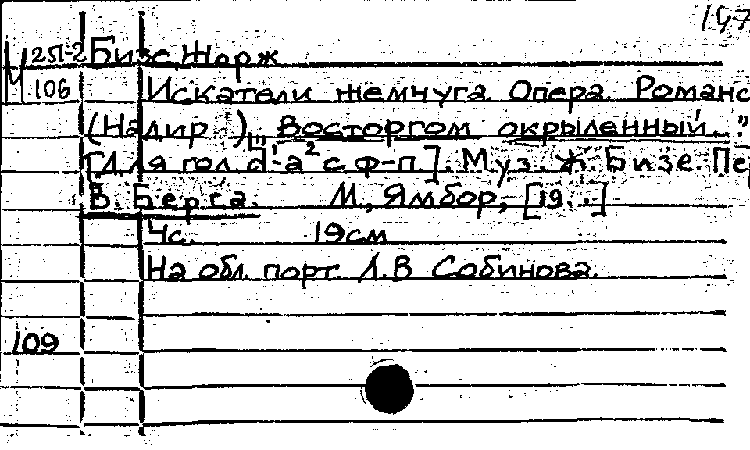 197
Ц 25П-2 Бизе, Жорж
106 Искатели жемчуга. Опера. Романс
(Надир). „Восторгом окрыленный..."
[Для гол. d¹-a² с ф-п]. Муз. Ж. Бизе. Пе
В. Берга. М., Ямбор, [19..]
4с. 19см
На обл. порт. Л.В Собинова.
109